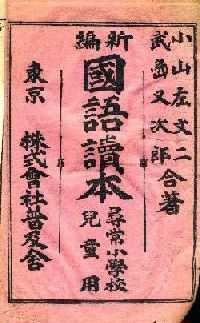 小山左文二
武島又次郎
合著
新編
國語讀本
尋常小學校
兒童用
東京
株式會社普及舍